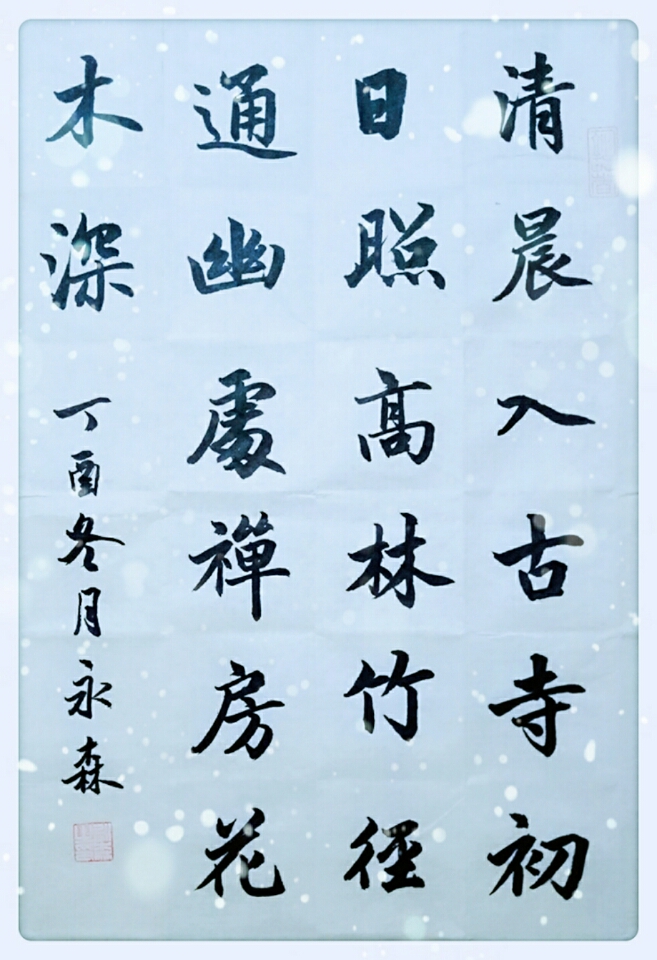 清晨入古寺初
日照高林竹徑
通幽處禪房花
木深
丁酉冬月永森